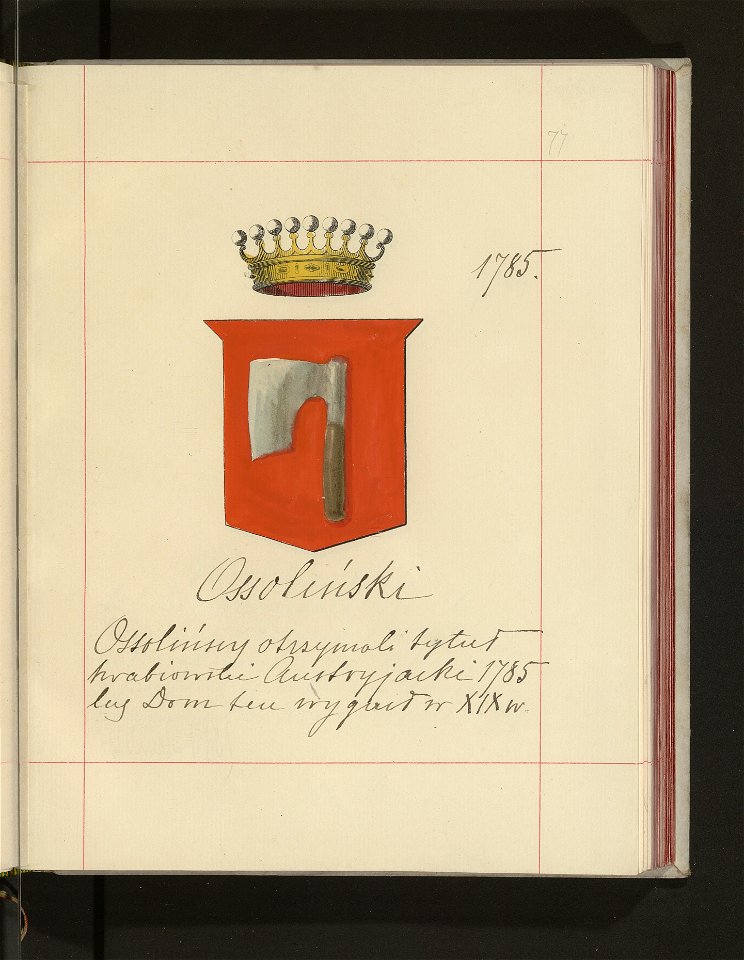 77
1785.
Ossoliński
Ossolińscy otrzymali tytuł
hrabiowski Austryjacki 1785
lecz Dom ten wygasł w XIX w.